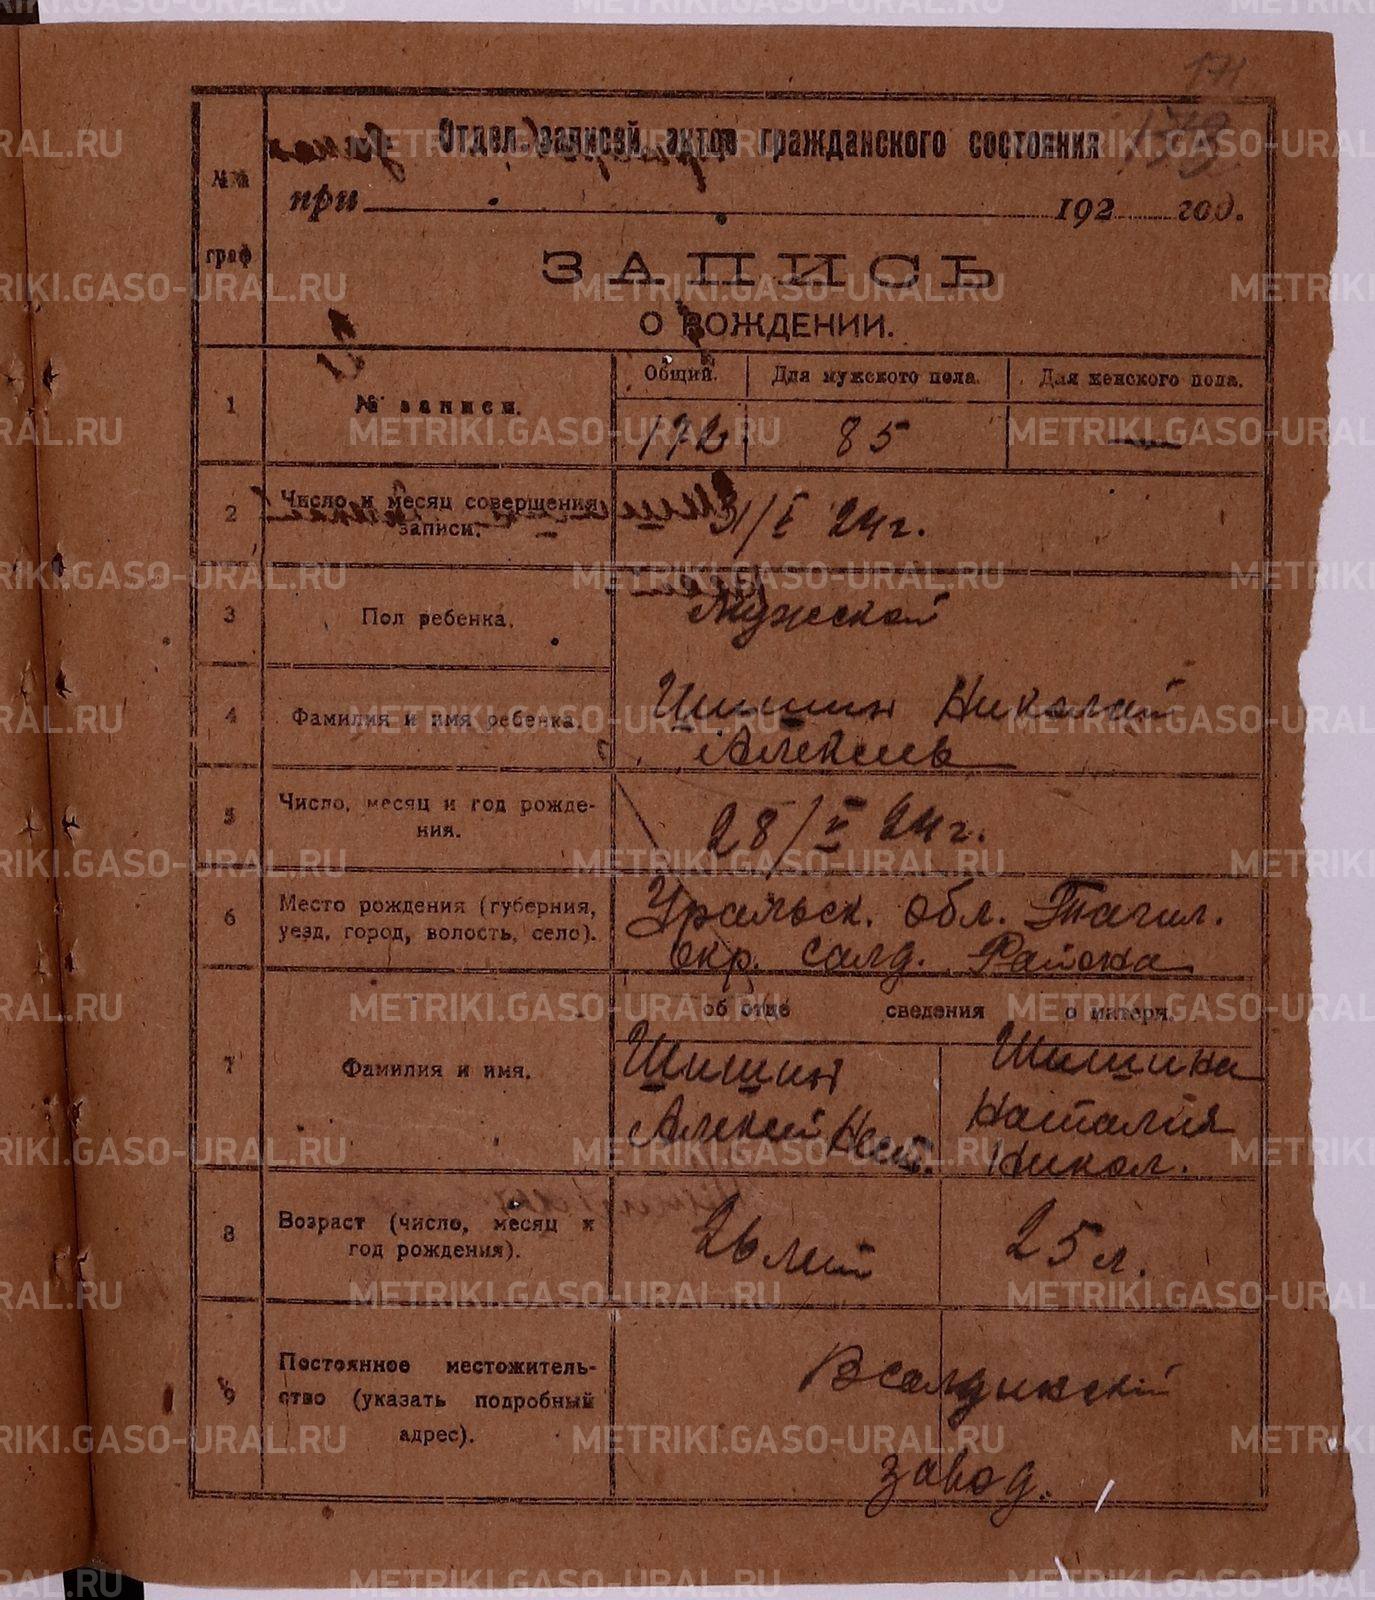 171
Отдел записей актов гражданского состояния
№№ граф
при 192 год.
ЗАПИСЬ
О РОЖДЕНИИ.
1
№ записи.
Общий.
Для мужского пола.
Для женского пола.
172
85
—
2
Число и месяц совершения
записи.
31/V 24 г.
3
Пол ребенка.
Мужской
4
Фамилия и имя ребенка.
Шишин Николай
Алексеев
5
Число, месяц и год рожде-
ния.
28/V 24 г.
6
Место рождения (губерния,
уезд, город, волость, село).
Уральск. обл. Тагил.
окр. Салд. Района
7
Фамилия и имя.
об отце сведения о матери.
Шишин
Алексей
Шишина
Наталия
Никол.
8
Возраст (число, месяц и
год рождения).
26 лет
25 л.
9
Постоянное местожитель-
ство (указать подробный
адрес).
Всалдинский
завод.
METRIKI.GASO-URAL.RU